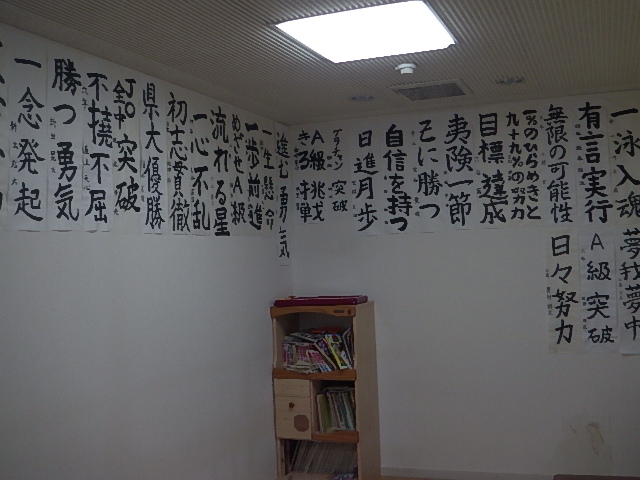 一泳入魂
夢我夢中
有言実行
A級突破
無限の可能性
日々努力
1%のひらめきと
九十九%の努力
目標達成
夷険一節
己に勝つ
自信を持つ
日進月歩
突破
A級挑戦
進む勇気
一生懸命
一歩前進
めざせA級
流れる星
一心不乱
初志貫徹
県大優勝
全中突破
不撓不屈
勝つ勇気
一念発起